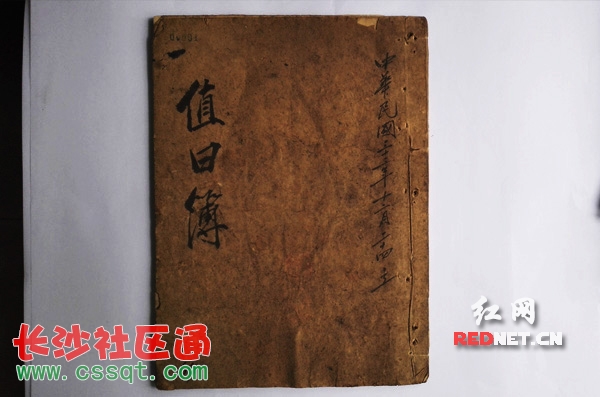 中華民國十二年十一月十四立
一
值日簿
长沙社区通
www.cssqt.com
红网
REDNET.CN